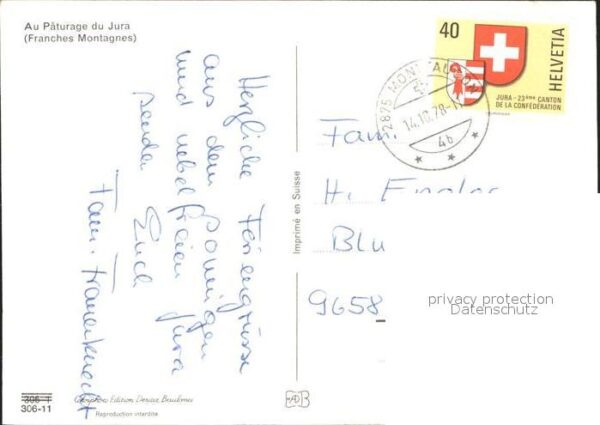 Au Pâturage du Jura
(Franches Montagnes)
Herzliche Feriengrüsse
aus dem sonnigen
und nebelfreien Jura
senden Euch
Fam. Frauenknecht
Imprimé en Suisse
40
HELVETIA
JURA - 23ème CANTON
DE LA CONFÉDÉRATION
2875 MONTFAUCON
14.10.78-11
Fam.
H. Engler
Blu
9658
privacy protection
Datenschutz
306-1
306-11
Edition
Reproduction interdite